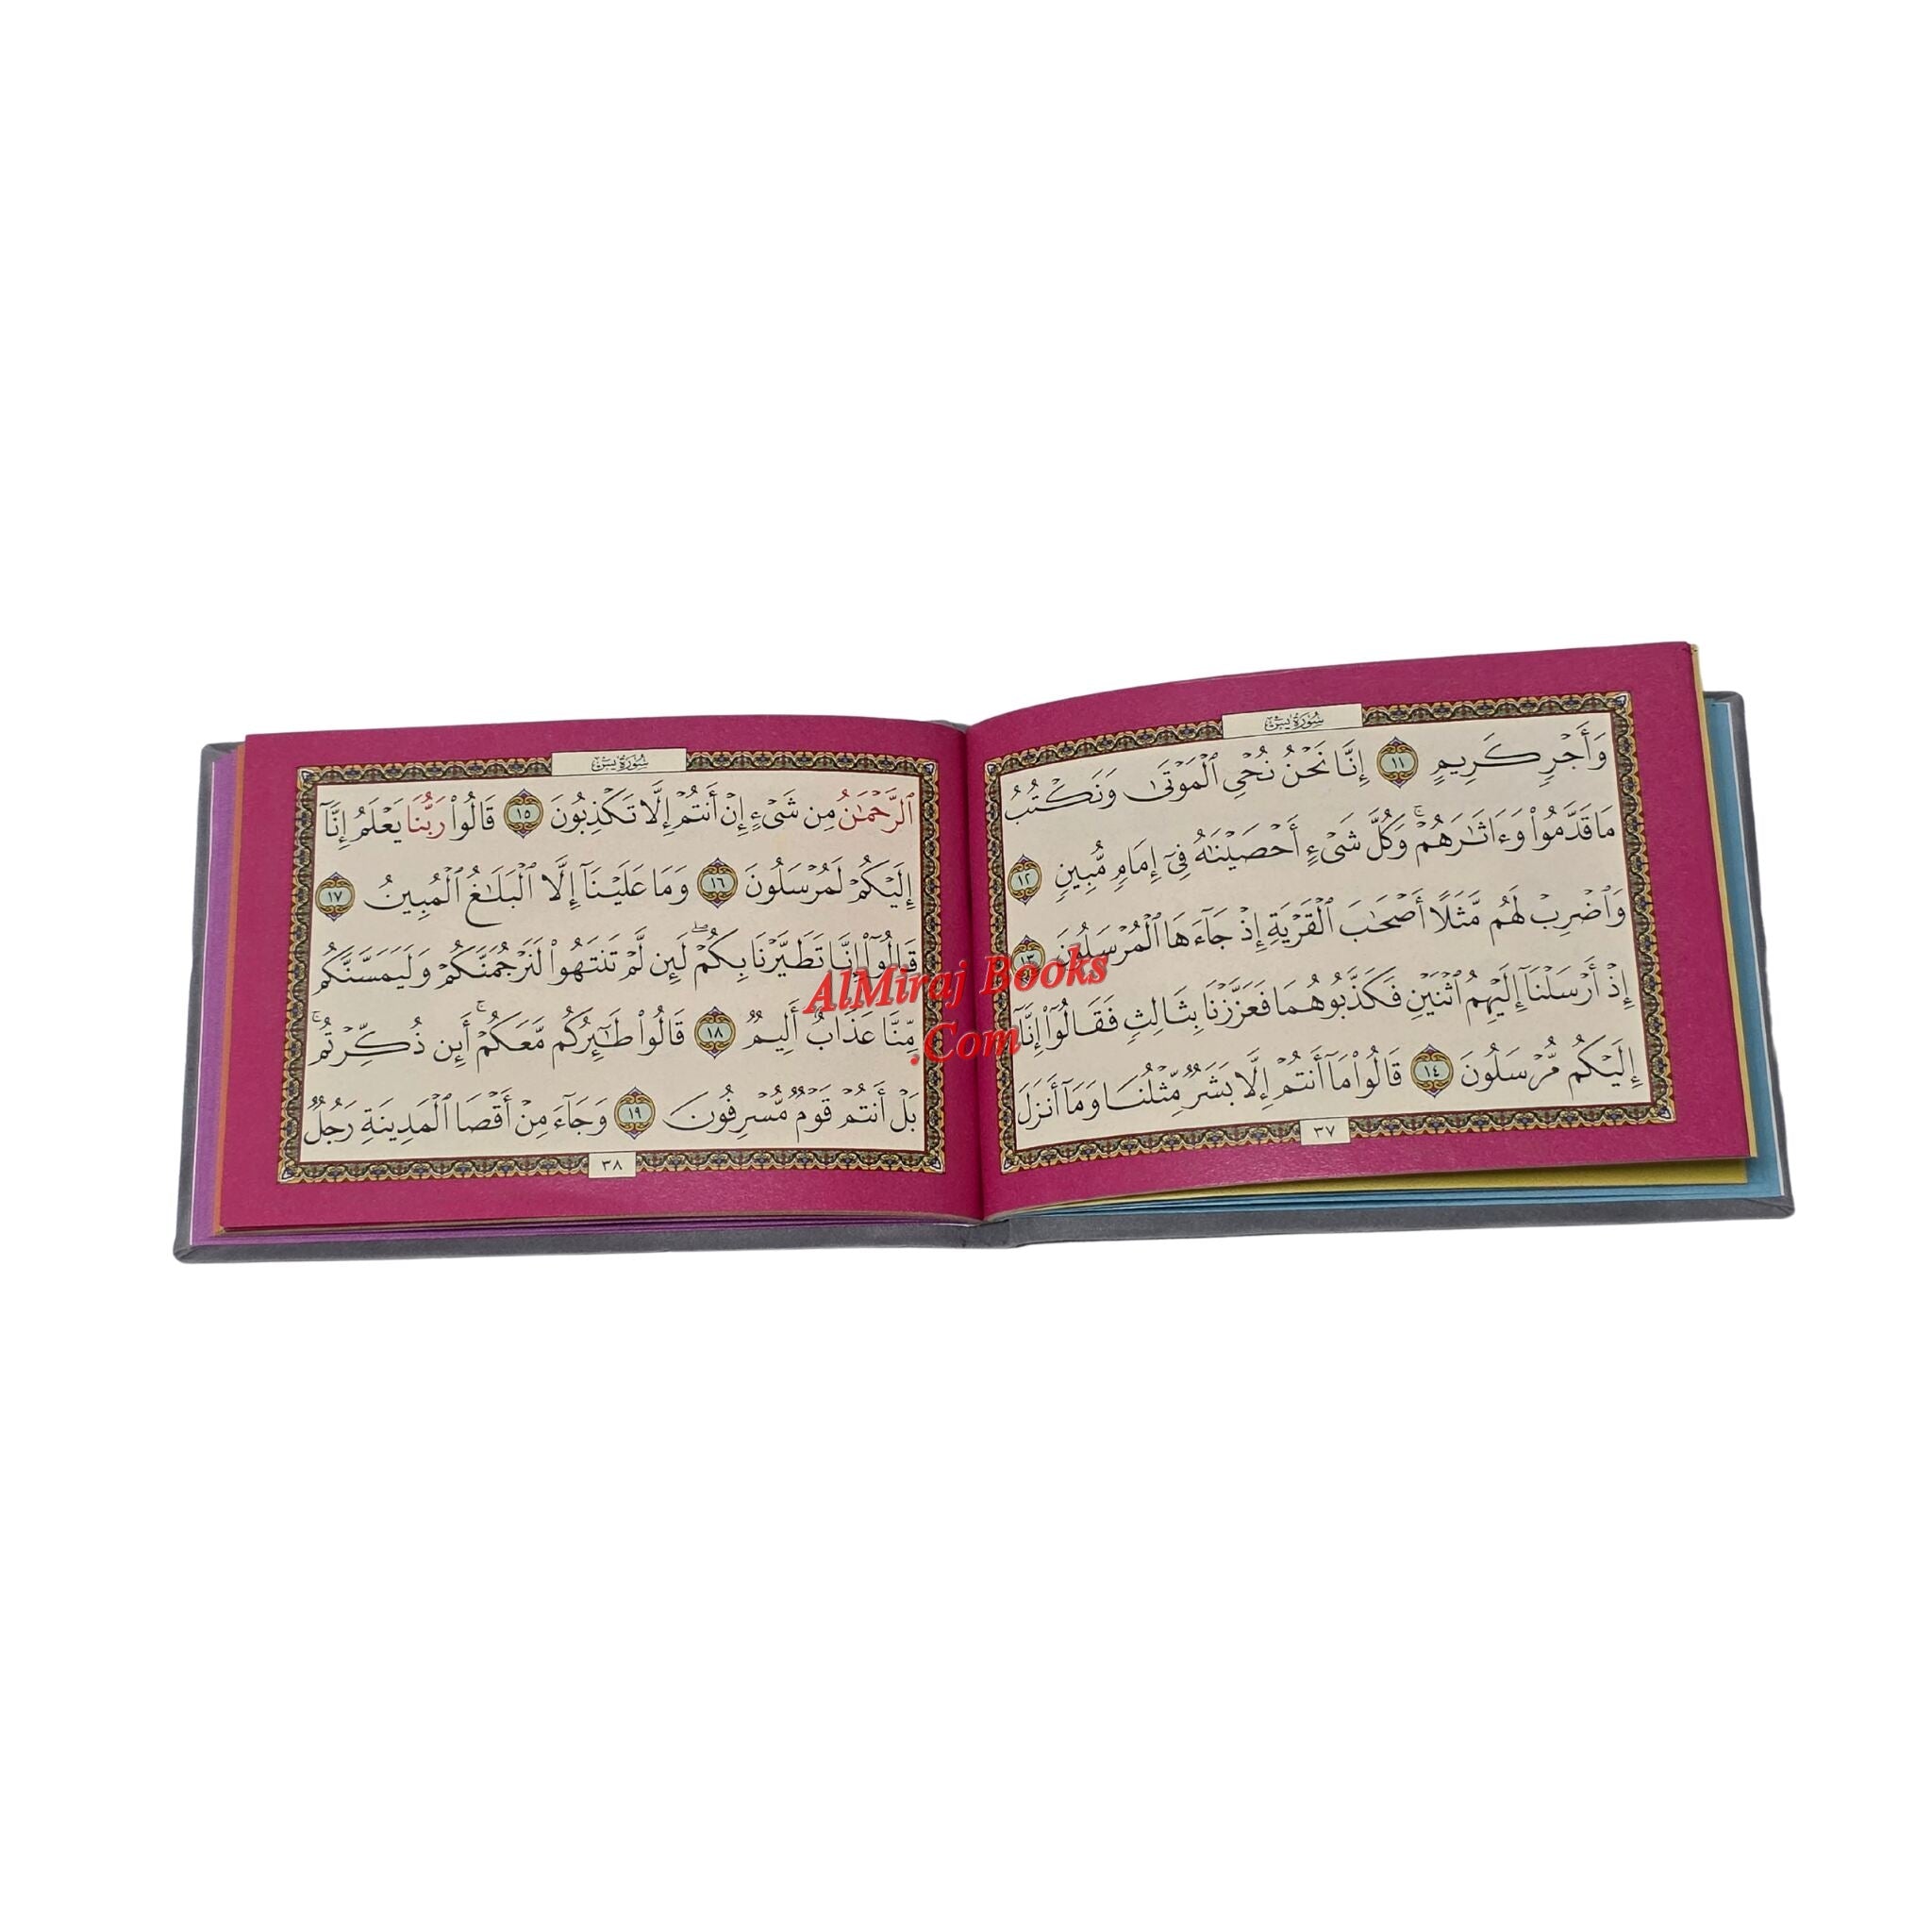 سُورَةُ يسٓ
وَأَجْرٍ كَرِيمٍ ١١ إِنَّا نَحْنُ نُحْيِ الْمَوْتَىٰ وَنَكْتُبُ
مَا قَدَّمُوا۟ وَءَاثَـٰرَهُمْ ۚ وَكُلَّ شَىْءٍ أَحْصَيْنَـٰهُ فِىٓ إِمَامٍ مُّبِينٍ ١٢
وَٱضْرِبْ لَهُم مَّثَلًا أَصْحَـٰبَ ٱلْقَرْيَةِ إِذْ جَآءَهَا ٱلْمُرْسَلُونَ ١٣
إِذْ أَرْسَلْنَآ إِلَيْهِمُ ٱثْنَيْنِ فَكَذَّبُوهُمَا فَعَزَّزْنَا بِثَالِثٍ فَقَالُوٓا۟ إِنَّآ
إِلَيْكُم مُّرْسَلُونَ ١٤ قَالُوا۟ مَآ أَنتُمْ إِلَّا بَشَرٌ مِّثْلُنَا وَمَآ أَنزَلَ
٣٧
سُورَةُ يسٓ
ٱلرَّحْمَـٰنُ مِن شَىْءٍ إِنْ أَنتُمْ إِلَّا تَكْذِبُونَ ١٥ قَالُوا۟ رَبُّنَا يَعْلَمُ إِنَّآ
إِلَيْكُمْ لَمُرْسَلُونَ ١٦ وَمَا عَلَيْنَآ إِلَّا ٱلْبَلَـٰغُ ٱلْمُبِينُ ١٧
قَالُوٓا۟ إِنَّا تَطَيَّرْنَا بِكُمْ ۖ لَئِن لَّمْ تَنتَهُوا۟ لَنَرْجُمَنَّكُمْ وَلَيَمَسَّنَّكُم
مِّنَّا عَذَابٌ أَلِيمٌ ١٨ قَالُوا۟ طَـٰٓئِرُكُم مَّعَكُمْ ۚ أَئِن ذُكِّرْتُم ۚ
بَلْ أَنتُمْ قَوْمٌ مُّسْرِفُونَ ١٩ وَجَآءَ مِنْ أَقْصَا ٱلْمَدِينَةِ رَجُلٌ
٣٨
AlMiraj Books
.Com